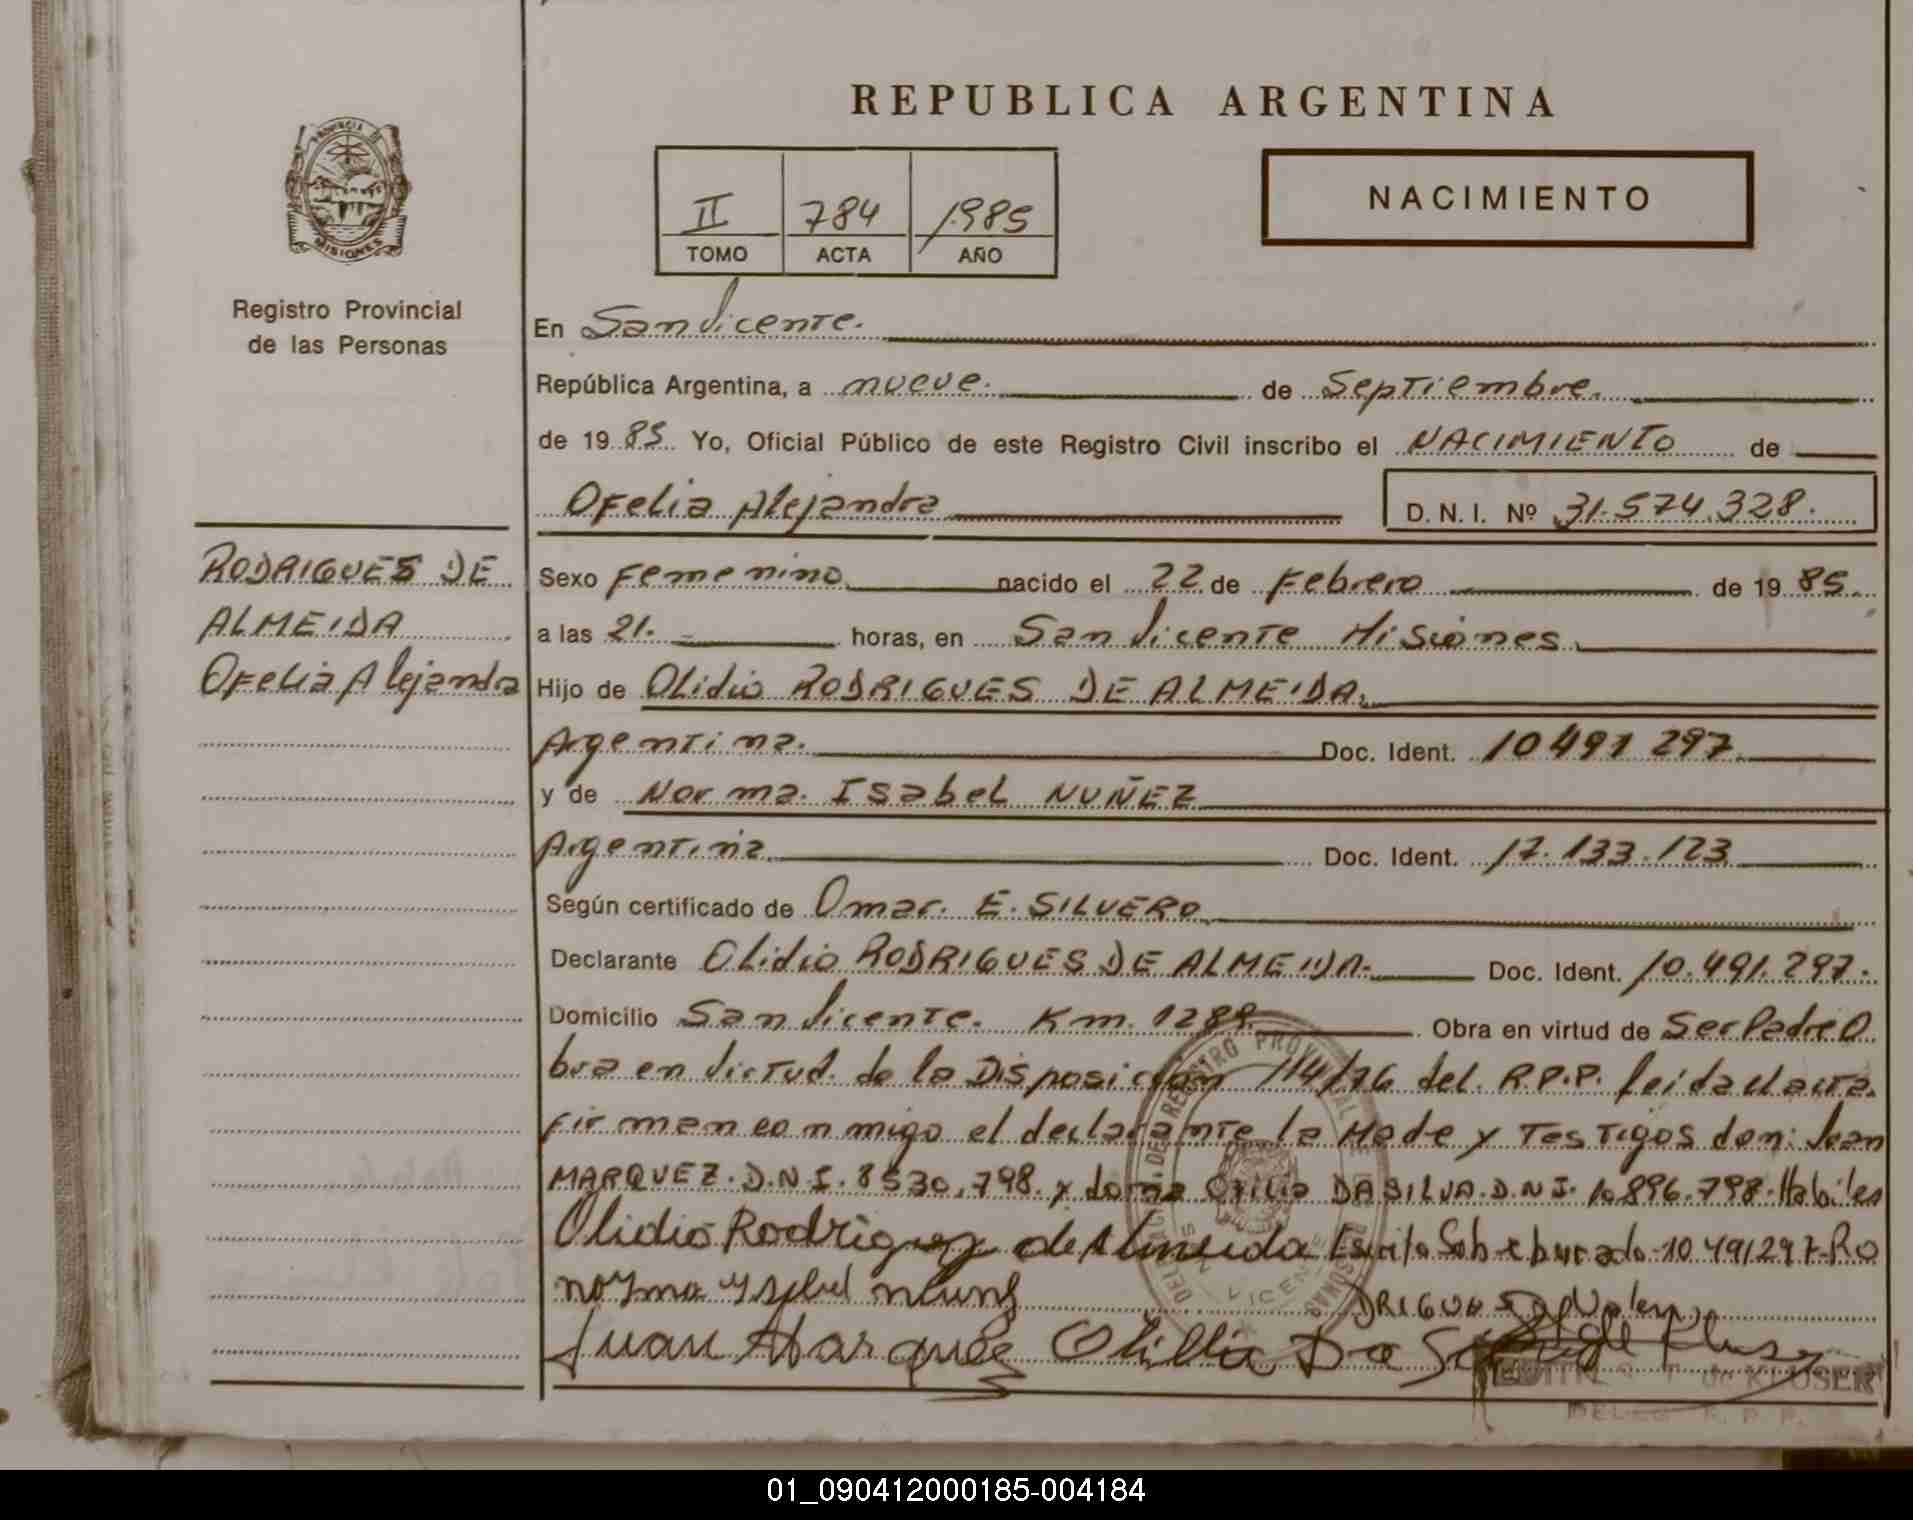 REPUBLICA ARGENTINA
PROVINCIA DE
MISIONES
II 784 1985
TOMO ACTA AÑO
NACIMIENTO
Registro Provincial
de las Personas
En San Vicente.
República Argentina, a nueve. de Septiembre.
de 1985 Yo, Oficial Público de este Registro Civil inscribo el NACIMIENTO de
Ofelia Alejandra D. N. I. Nº 31.574.328.
RODRIGUES DE
ALMEIDA
Ofelia Alejandra
Sexo Femenino nacido el 22 de Febrero de 1985.
a las 21. horas, en San Vicente Misiones.
Hijo de Olidio RODRIGUES DE ALMEIDA.
Argentina. Doc. Ident. 10491297.
y de Norma Isabel NUÑEZ
Argentina Doc. Ident. 17.133.123
Según certificado de Omar. E. SILVERO
Declarante Olidio RODRIGUES DE ALMEIDA. Doc. Ident. 10.491.297.
Domicilio San Vicente. Km. 1289 Obra en virtud de Ser Padre O
bra en virtud de la Disposición 114/76 del R.P.P. leida el acta
firman conmigo el declarante la Made y Testigos don: Juan
MARQUEZ. D.N.I. 8530.798. y doña Otilia DA SILVA. D.N.I. 10.896.798. Habiles
Olidio Rodriguez de Almeida Escrito Sobreburado 10.491297-Ro
norma ysabel nuñes DRIGUES Valen
Juan Marquez Otillia Da Silva
KLUSER
DELEG R. P. P.
01_090412000185-004184